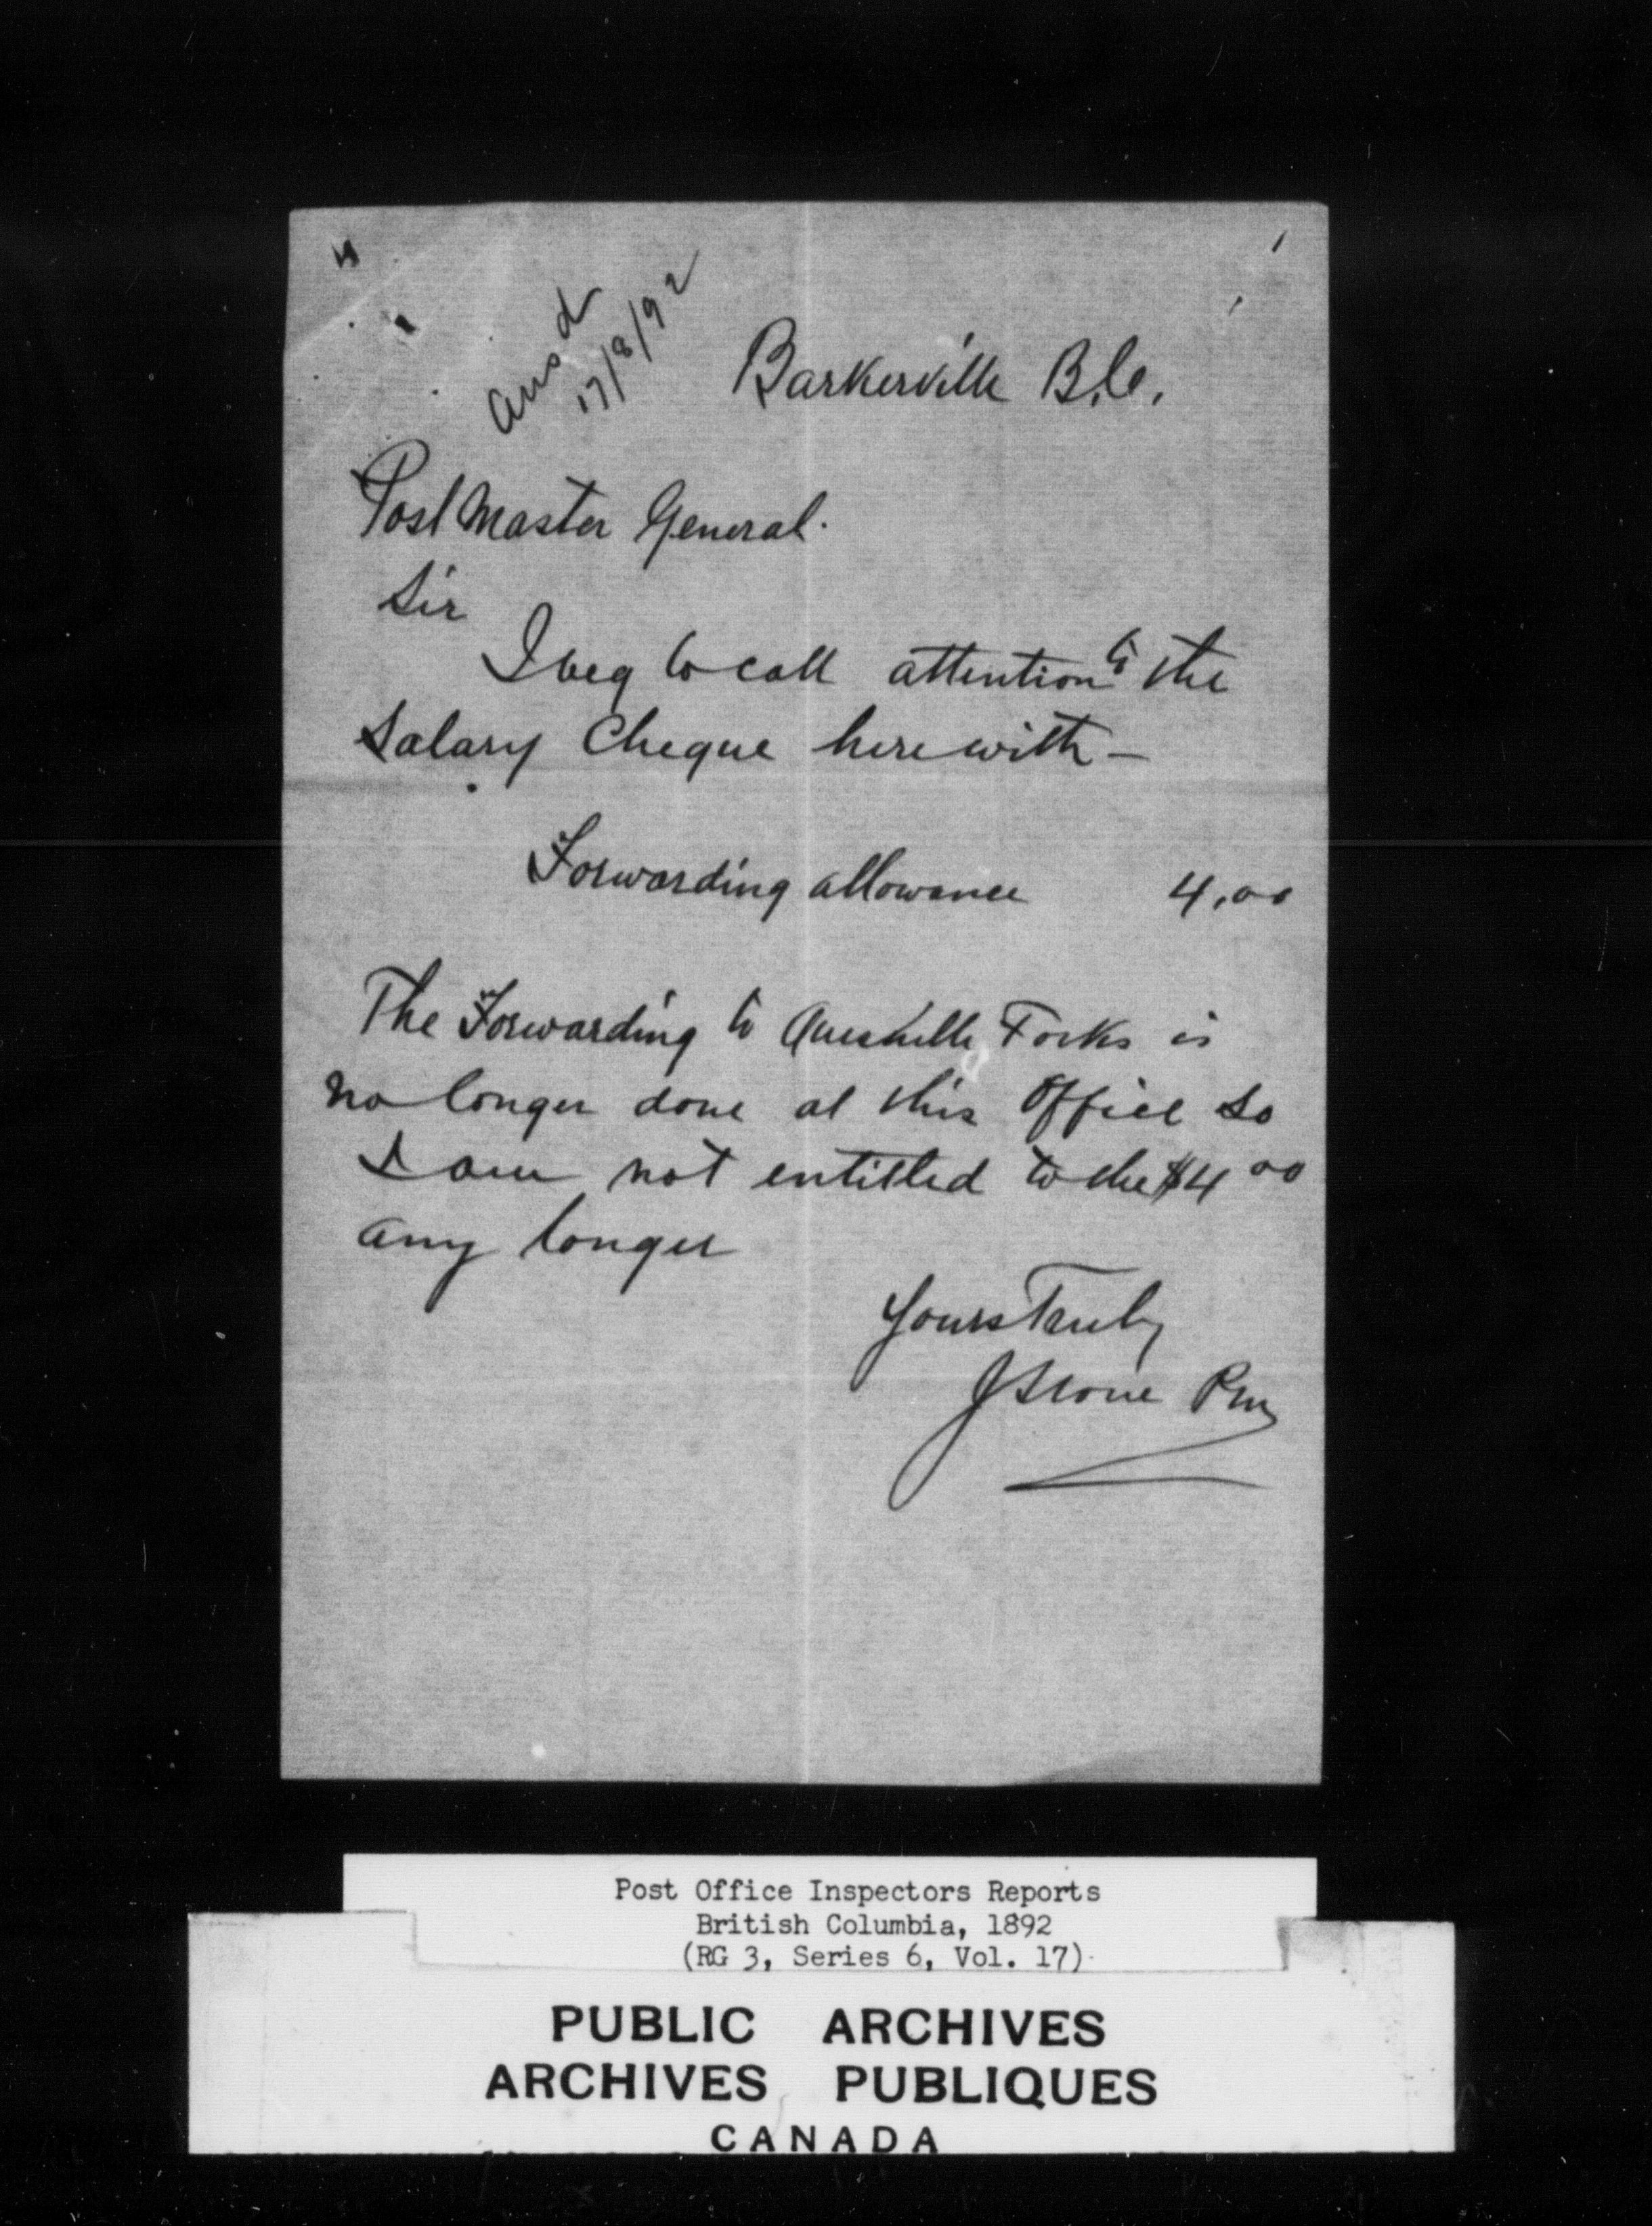 Ansd
17/8/92
Barkerville B.C.
Post Master General.
Sir
I beg to call attention to the
Salary Cheque herewith —
Forwarding allowance 4.00
The Forwarding to Quesnelle Forks is
no longer done at this Office so
I am not entitled to the $4 00
any longer
Yours Truly
J Stone PM
Post Office Inspectors Reports
British Columbia, 1892
(RG 3, Series 6, Vol. 17)
PUBLIC ARCHIVES
ARCHIVES PUBLIQUES
CANADA